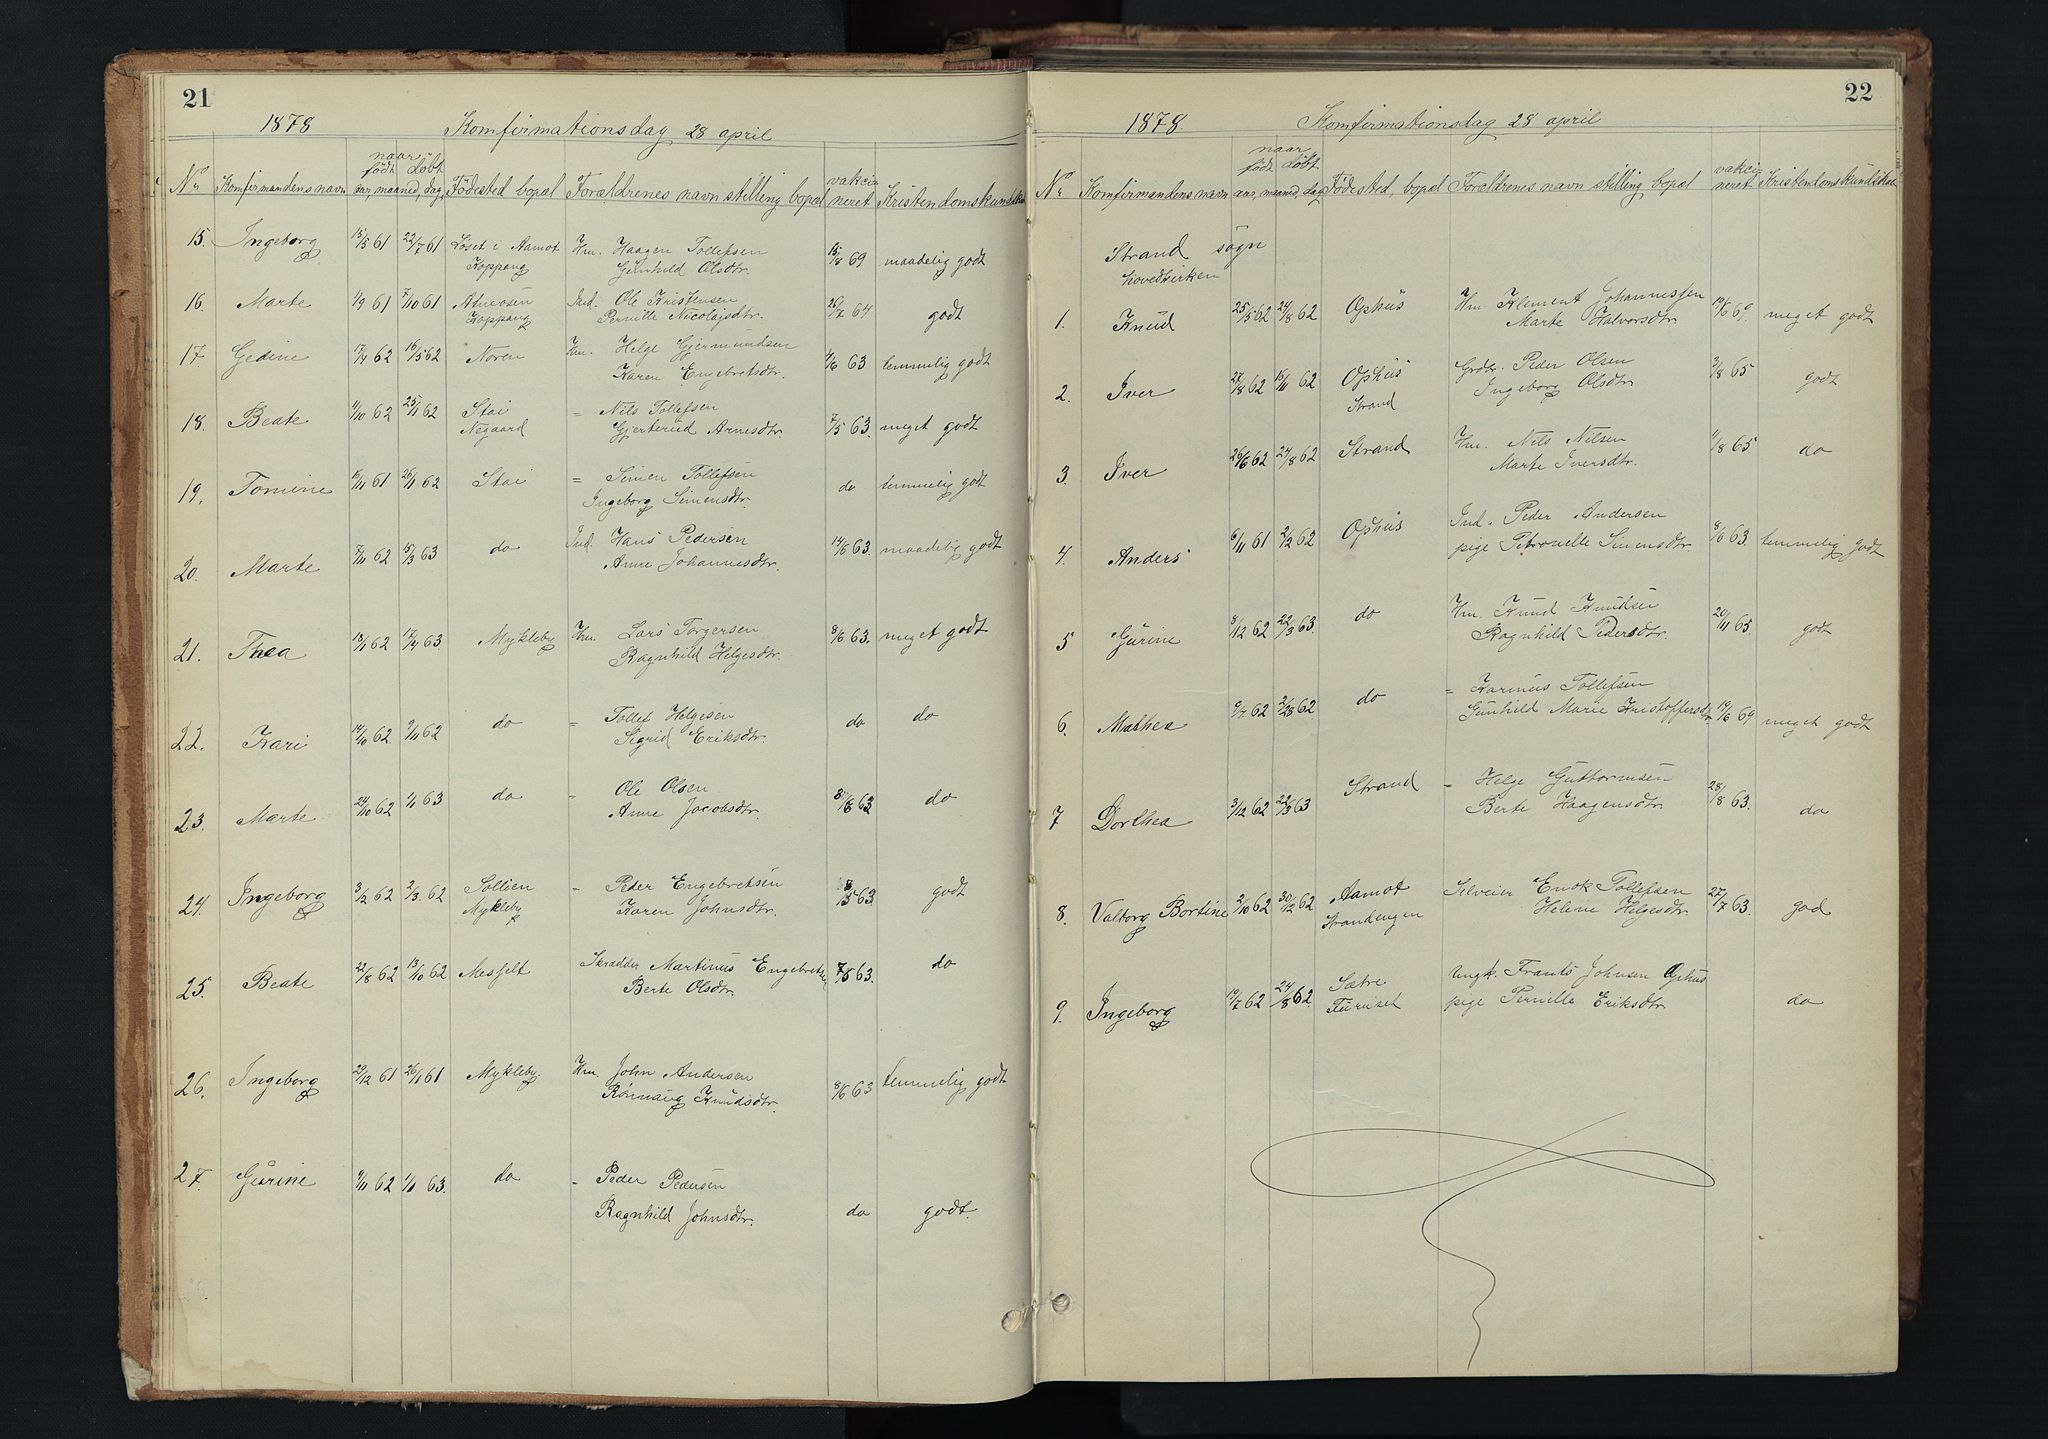 21
1878 Komfirmationsdag 28 april
naar
født døbt
No Komfirmandens navn aar, maaned, dag, Fødested bopæl Forældrenes navn stilling bopæl vakcineret Kristendomskundskab
15. Ingeborg 15/5 61 22/7 61 Løset i Aamot Hm. Haagen Tollefsen 15/8 69 maadelig godt
Koppang Gunhild Olsdtr.
16. Marte 1/9 61 7/10 61 Atneosen Ind. Ole Kristensen 26/7 64 godt
Koppang Pernille Nicolajsdtr.
17. Gedine 17/4 62 16/5 62 Noren Hm. Helge Gjermundsen 4/6 63 temmelig godt
Karen Engebretsdtr.
18. Beate 1/10 62 25/11 62 Stai = Nils Tollefsen 7/5 63. meget godt
Negaard Gjertrud Arnesdtr.
19. Tomine 15/11 61 26/1 62 Stai = Simen Tollefsen do temmelig godt
Ingeborg Simensdtr.
20. Marte 7/11 62 15/3 63 do Ind. Hans Pedersen 14/6 63. maadelig godt
Anne Johannesdtr.
21. Thea 13/11 62 17/4 63. Mykleby Hm. Lars Torgersen 8/6 63. meget godt
Ragnhild Helgesdtr.
22. Kari 14/10 62. 9/11 62 do = Tollef Helgesen do do
Sigrid Eriksdtr.
23. Marte 24/10 62 1/1 63 do = Ole Olsen 8/6 63 do
Anne Jacobsdtr.
24. Ingeborg 3/2 62 2/3. 62 Sollien = Peder Engebretsen 63 godt
Mykleby Karen Johnsdtr.
25. Beate 22/8 62 13/10 62 Messelt Skrædder Martinus Engebretsen 63. do
Berte Olsdtr.
26. Ingeborg 29/12 61 26/1 61 Mykleby. Hm. John Andersen 8/6 63 temmelig godt
Rønnaug Knudsdtr.
27. Gurine 9/11 62 1/1 63. do = Peder Pedersen
Ragnhild Johnsdtr. do godt.
22
1878. Komfirmationsdag 28 april
naar
født døbt
No Komfirmandens navn aar, maaned, dag Fødested, bopæl Forældrenes navn stilling bopæl vakcineret Kristendomskundskab
Strand sogn
hovedkirken
1. Knud 25/5 62 24/8 62 Ophus Hm Klement Johannessen 19/6 69. meget godt
Marte Halvorsdtr.
2. Iver 27/8 62 16/11 62 Ophus Grdbr. Peder Olsen 3/8 65 godt
Strand Ingeborg Olsdtr.
3. Iver 26/6 62 24/8 62 Strand Hm. Nils Nilsen 1/8 65 do
Marte Iversdtr.
4. Anders 6/11 61 2/2 62 Ophus Ind. Peder Andersen 8/6 63. temmelig godt
pige Petronelle Simensdtr.
5 Gurine 8/12 62 22/3 63. do Hm. Knud Knudsen 20/11 65. godt
Ragnhild Pedersdtr.
6. Mathea 9/7 62 62 do = Karinus Tollefsen
Gunhild Marie Kristoffersdtr 19/6 69 meget godt
7 Dorthea 3/12 62 22/3 63 Strand = Helge Guttormsen 28/8 63. do
Berte Haagensdtr.
8. Valborg Bortine 2/10 62 30/12 62 Aamot Selveier Enok Tollefsen 27/7 63. god
Strandengen Helene Helgesdtr.
9. Ingeborg 19/7 62 24/8 62. Sætre Ungk. Frants Johnsen Ophus do
Furuset pige Pernille Eriksdtr.